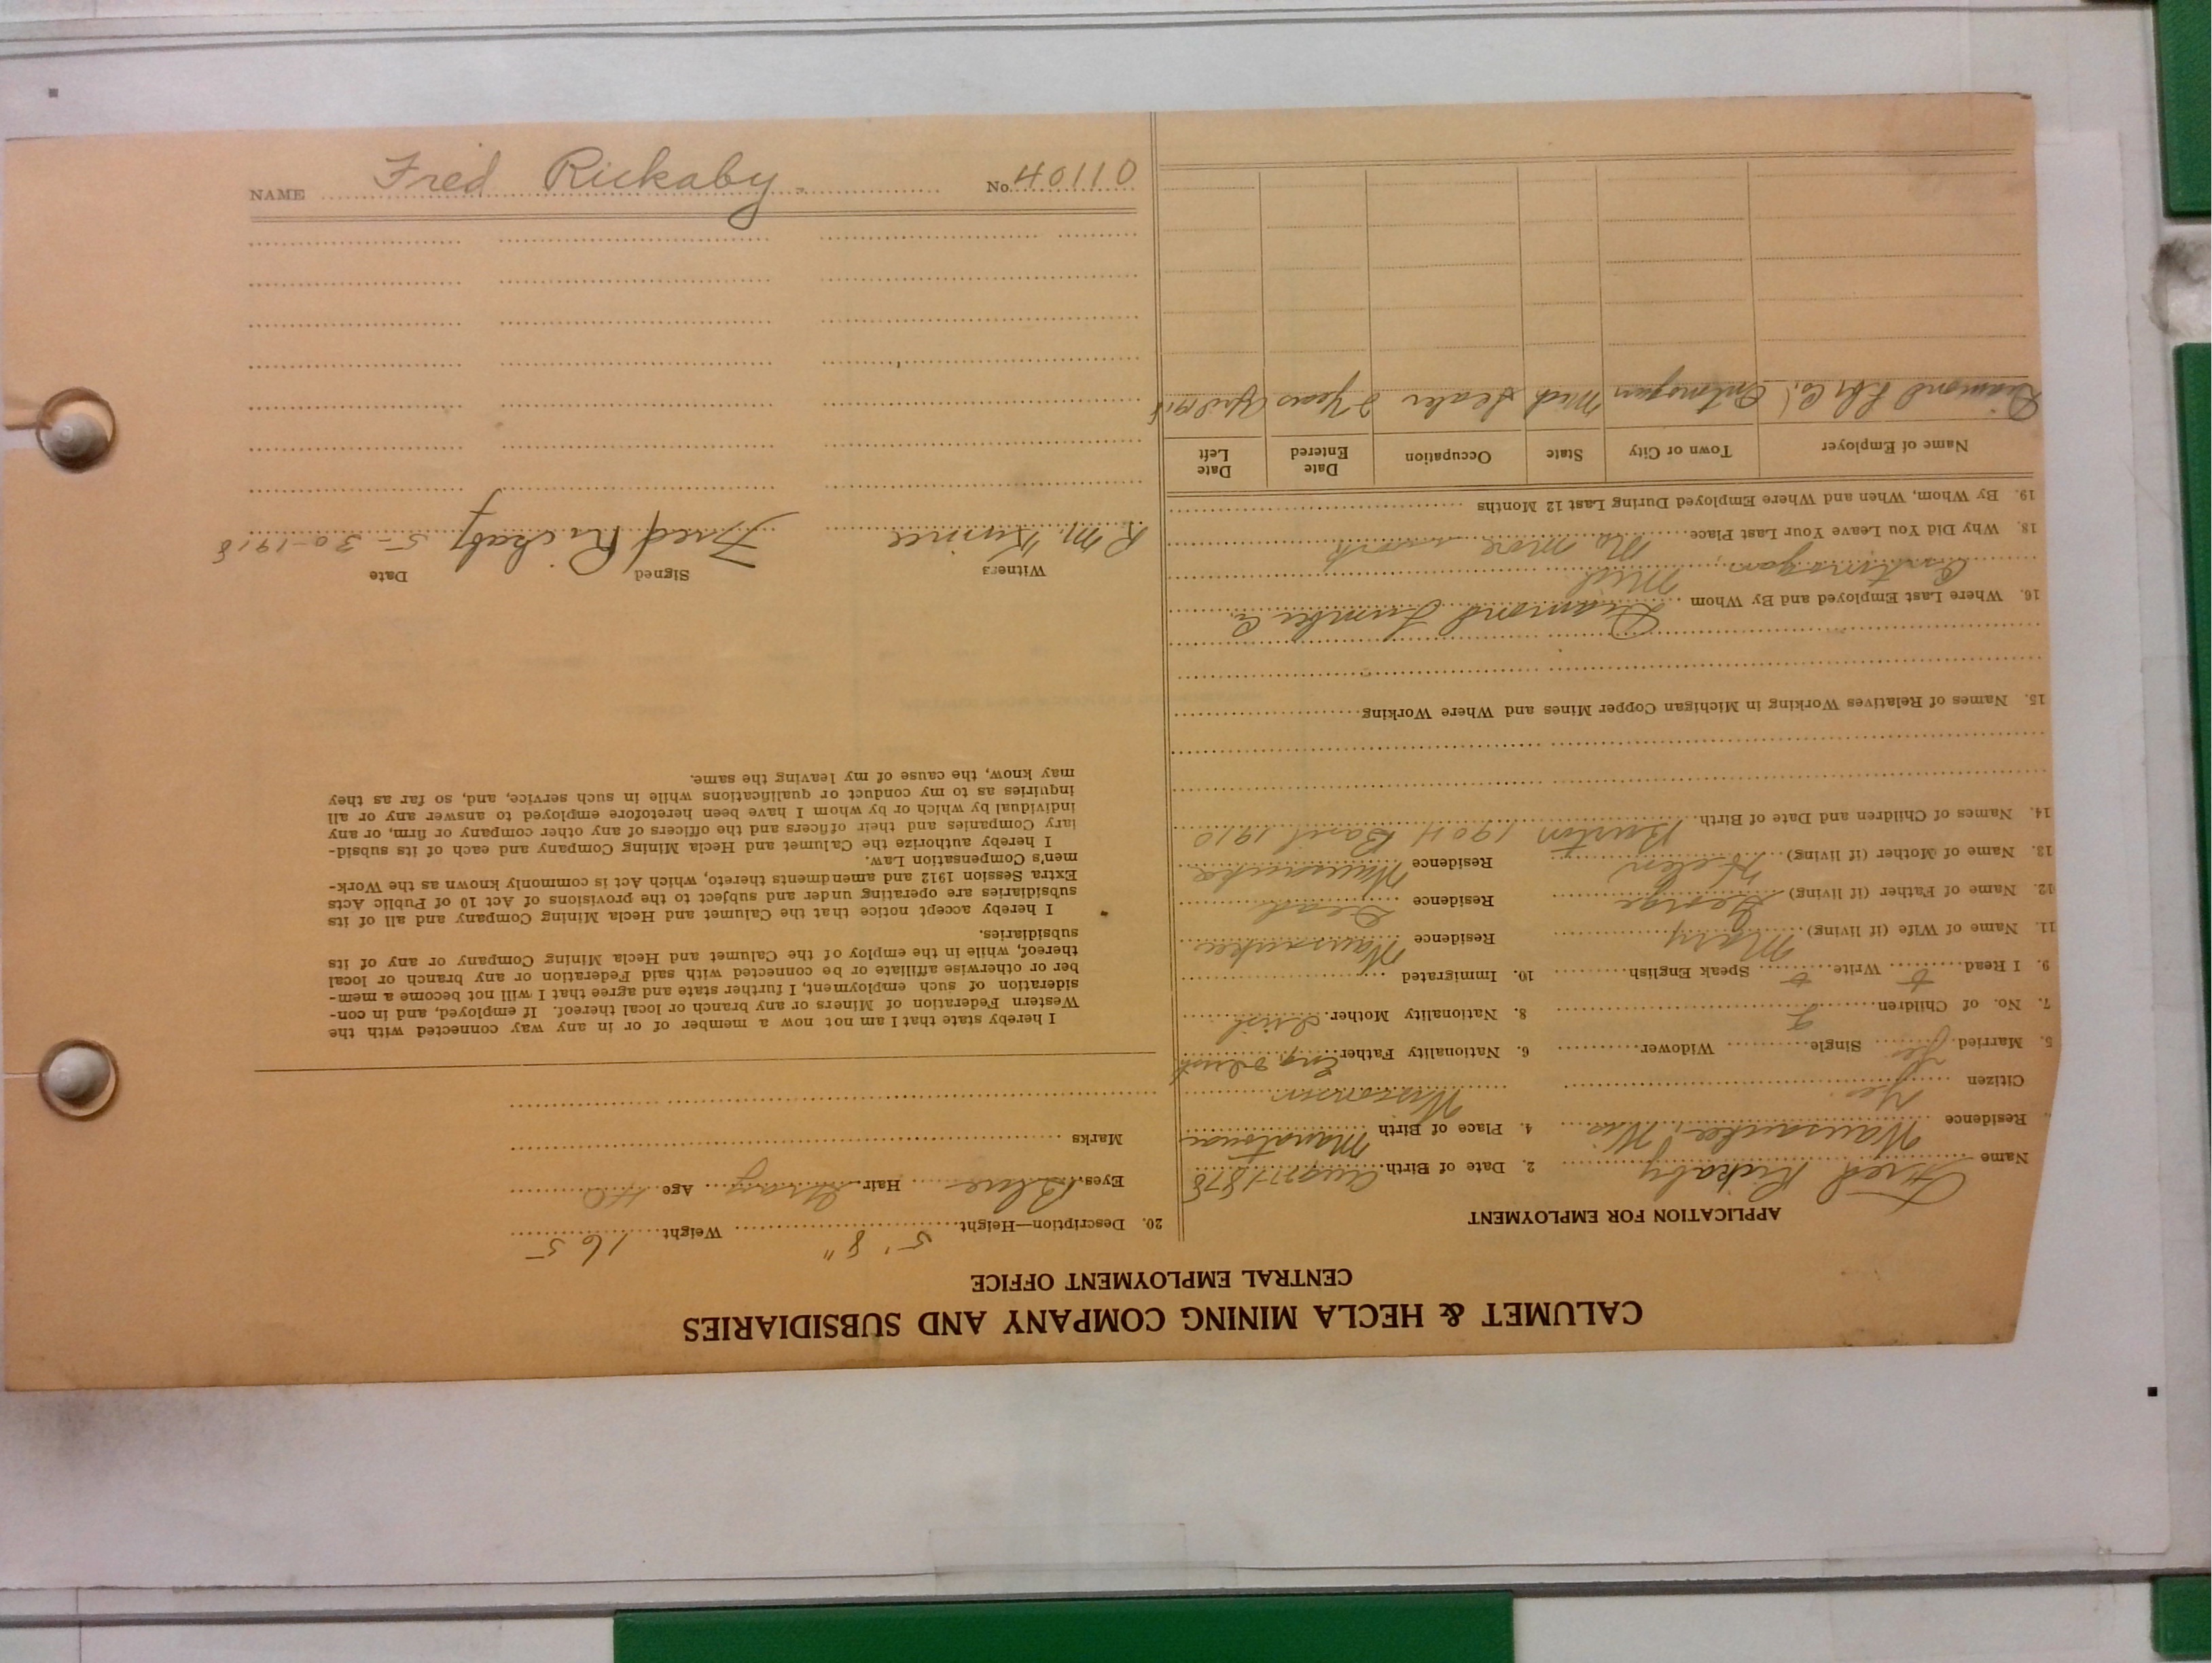 NAME Fred Rickaby No. 40110
CALUMET & HECLA MINING COMPANY AND SUBSIDIARIES
CENTRAL EMPLOYMENT OFFICE
APPLICATION FOR EMPLOYMENT
Name Fred Rickaby 2. Date of Birth Aug 1878
Residence Wausaukee, Wis 4. Place of Birth
Wisconsin
Citizen Yes
5. Married Yes Single Widower 6. Nationality Father Eng
7. No. of Children 2 8. Nationality Mother Irish
9. I Read Write Speak English 10. Immigrated
11. Name of Wife (if living) Mary Residence Wausaukee
12. Name of Father (if living) George Residence Dead
13. Name of Mother (if living) Helen Residence Wausaukee
14. Names of Children and Date of Birth Burton 1904 Basil 1910
15. Names of Relatives Working in Michigan Copper Mines and Where Working
16. Where Last Employed and By Whom Diamond Lumber Co.
Ontonagon, Mich
18. Why Did You Leave Your Last Place No more work
19. By Whom, When and Where Employed During Last 12 Months
Name of Employer Town or City State Occupation Date Entered Date Left
Diamond Lbr Co. Ontonagon Mich 2 Years April 1918
20. Description—Height 5' 8" Weight 165
Eyes Blue Hair Gray Age 40
Marks
I hereby state that I am not now a member of or in any way connected with the
Western Federation of Miners or any branch or local thereof. If employed, and in con-
sideration of such employment, I further state and agree that I will not become a mem-
ber or otherwise affiliate or be connected with said Federation or any branch or local
thereof, while in the employ of the Calumet and Hecla Mining Company or any of its
subsidiaries.
I hereby accept notice that the Calumet and Hecla Mining Company and all of its
subsidiaries are operating under and subject to the provisions of Act 10 of Public Acts
Extra Session 1912 and amendments thereto, which Act is commonly known as the Work-
men's Compensation Law.
I hereby authorize the Calumet and Hecla Mining Company and each of its subsid-
iary Companies and their officers and the officers of any other company or firm, or any
individual by which or by whom I have been heretofore employed to answer any or all
inquiries as to my conduct or qualifications while in such service, and, so far as they
may know, the cause of my leaving the same.
Witness Signed Date
R M Fred Rickaby 5-30-1918